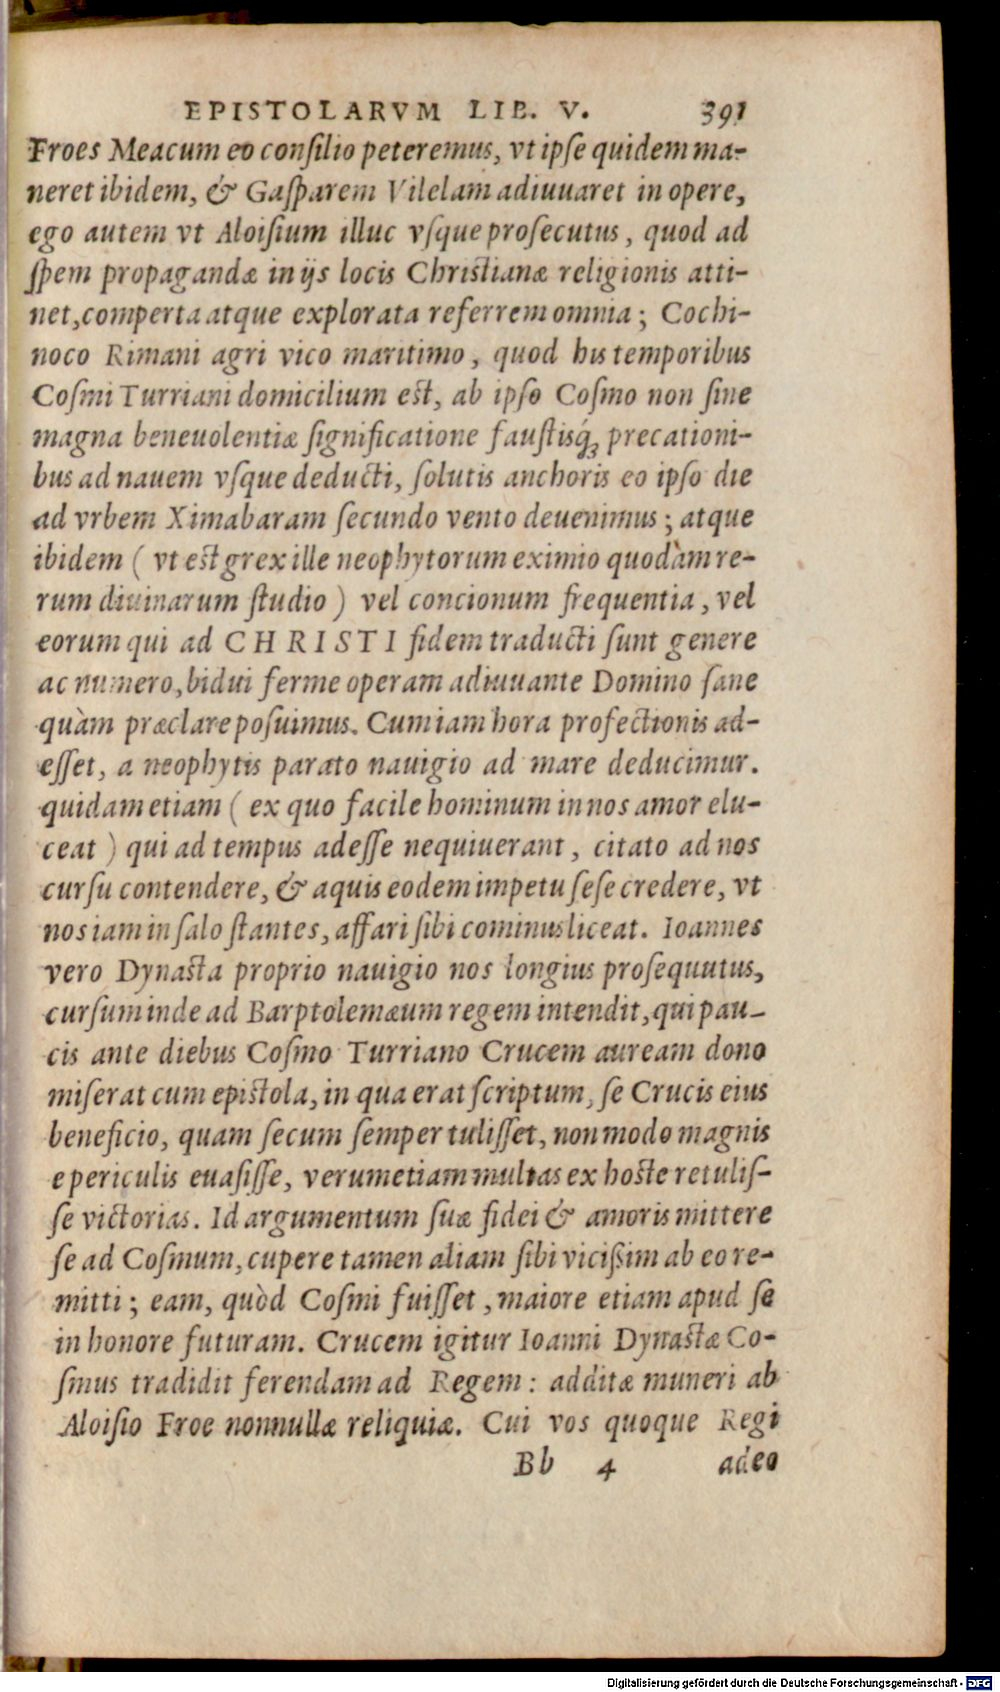 EPISTOLARVM LIB. V. 391
Froes Meacum eo conſilio peteremus, vt ipſe quidem ma-
neret ibidem, & Gaſparem Vilelam adiuuaret in opere,
ego autem vt Aloiſium illuc vſque proſecutus, quod ad
ſpem propagandæ in ijs locis Chriſtianæ religionis atti-
net, comperta atque explorata referrem omnia; Cochi-
noco Rimani agri vico maritimo, quod his temporibus
Coſmi Turriani domicilium eſt, ab ipſo Coſmo non ſine
magna beneuolentiæ ſignificatione fauſtisq́; precationi-
bus ad nauem vſque deducti, ſolutis anchoris eo ipſo die
ad vrbem Ximabaram ſecundo vento deuenimus; atque
ibidem (vt eſt grex ille neophytorum eximio quodàm re-
rum diuinarum ſtudio) vel concionum frequentia, vel
eorum qui ad CHRISTI fidem traducti ſunt genere
ac numero, bidui ferme operam adiuuante Domino ſane
quàm præclare poſuimus. Cum iam hora profectionis ad-
eſſet, a neophytis parato nauigio ad mare deducimur.
quidam etiam (ex quo facile hominum in nos amor elu-
ceat) qui ad tempus adeſſe nequiuerant, citato ad nos
curſu contendere, & aquis eodem impetu ſeſe credere, vt
nos iam in ſalo ſtantes, affari ſibi cominus liceat. Ioannes
vero Dynaſta proprio nauigio nos longius proſequutus,
curſum inde ad Barptolemæum regem intendit, qui pau-
cis ante diebus Coſmo Turriano Crucem auream dono
miſerat cum epiſtola, in qua erat ſcriptum, ſe Crucis eius
beneficio, quam ſecum ſemper tuliſſet, non modo magnis
e periculis euaſiſſe, verumetiam multas ex hoſte retuliſ-
ſe victorias. Id argumentum ſuæ fidei & amoris mittere
ſe ad Coſmum, cupere tamen aliam ſibi viciſsim ab eo re-
mitti; eam, quòd Coſmi fuiſſet, maiore etiam apud ſe
in honore futuram. Crucem igitur Ioanni Dynaſtæ Co-
ſmus tradidit ferendam ad Regem: additæ muneri ab
Aloiſio Froe nonnullæ reliquiæ. Cui vos quoque Regi
Bb 4 adeo
Digitalisierung gefördert durch die Deutsche Forschungsgemeinschaft - DFG